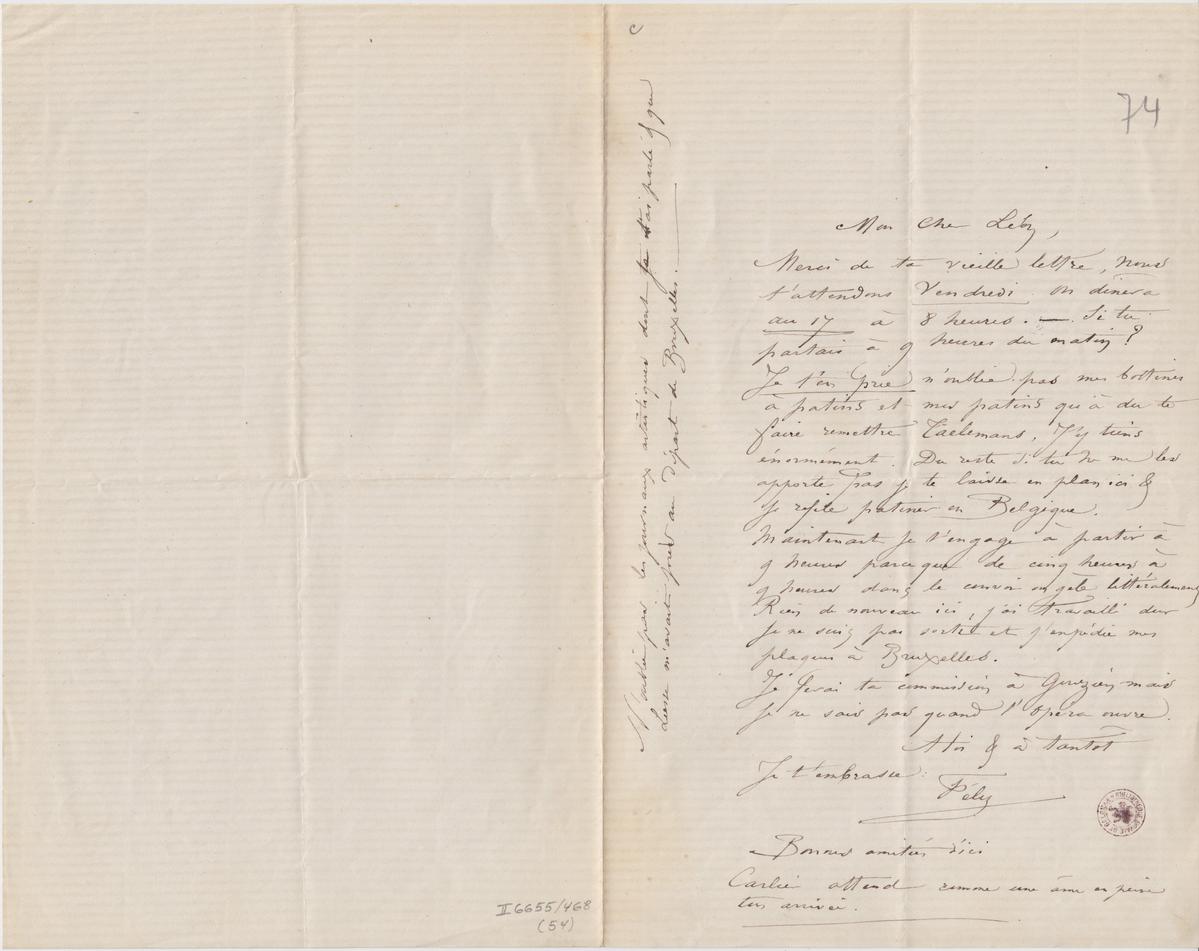 74
Mon Cher Léon,
Merci de ta vieille lettre, nous
t'attendons Vendredi. On dinera
au 17 à 8 heures. — Si tu
partais à 9 heures du matin ?
Je t'en prie n'oublie pas mes bottines
à patins et mes patins qu'à du te
faire remettre Taelemans. J'y tiens
énormément. Du reste si tu ne me les
apporte pas je te laisse en plan ici &
je refile patiner en Belgique.
Maintenant je t'engage à partir à
9 heures parceque de cinq heures à
9 heures dans le convoi on gèle littéralement
Rien de nouveau ici, j'ai travaillé dur
je ne suis pas sorti et j'expédie mes
plaques à Bruxelles.
Je ferai ta commission à Gouzien mais
je ne sais pas quand l'Opéra ouvre.
A toi & à tantôt
Je t'embrasse :
Fély
Bonnes amitiés d'ici
Carlier attend comme une âme en peine
ton arrivée.
N'oublie pas les journaux artistiques dont je t'ai parlé & que
Liesse m'avait pris au départ de Bruxelles.
II 6655/468
(54)